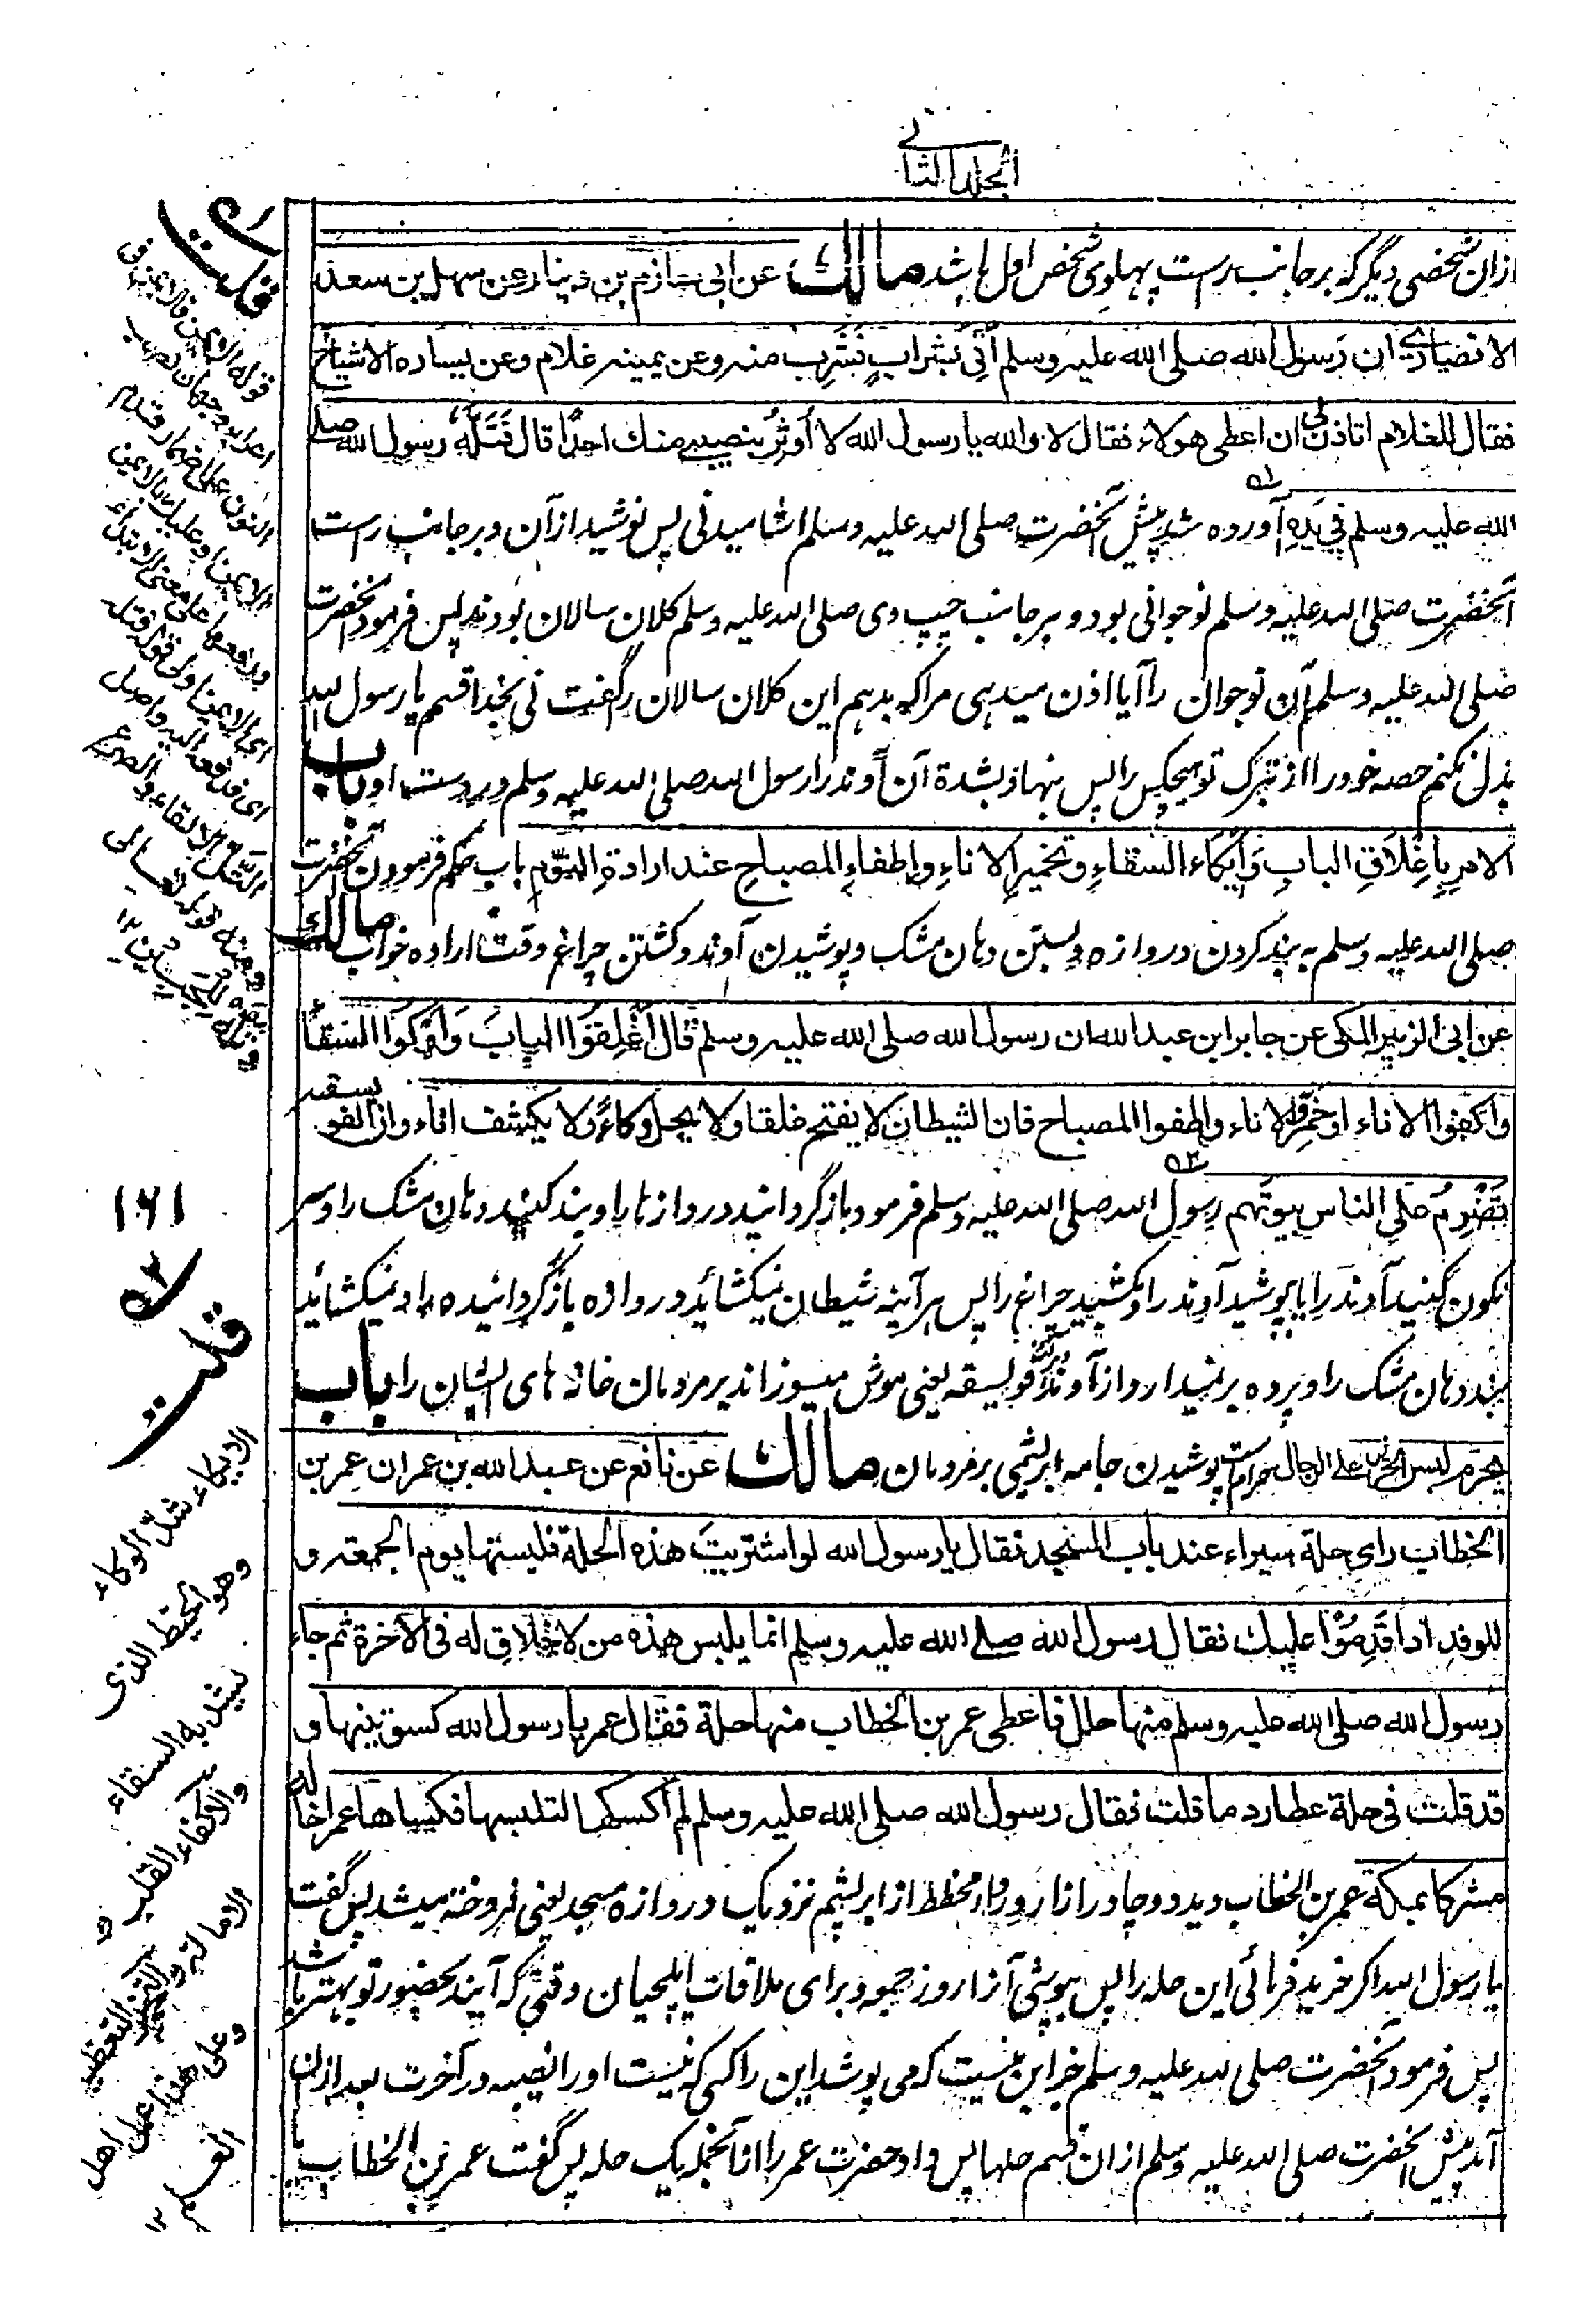 المجلد الثانی
ازان شخصی دیگر که بر جانب راست پهلوی شخص اول باشد مالك عن ابی حازم بن دینار عن سهل بن سعد
الانصاری ان رسول الله صلی الله علیه وسلم اُتِیَ بشرابٍ فشَرِب منه وعن یمینه غلام وعن یساره الاشیاخ
فقال للغلام اتاذن لی ان اعطی هولاء فقال لا والله یا رسول الله لا اُوثِرُ بنصیبی منك احدًا قال فَتَلَّه رسول الله صلی
الله علیه وسلم فی یَدِهِ آورده شد پیش آنحضرت صلی الله علیه وسلم اشامیدنی پس نوشید ازان و بر جانب راست
آنحضرت صلی الله علیه وسلم نوجوانی بود و بر جانب چپ وی صلی الله علیه وسلم کلان سالان بودند پس فرمود آنحضرت
صلی الله علیه وسلم آن نوجوان را آیا اذن میدهی مرا که بدهم این کلان سالان را گفت نی بخدا قسم یا رسول الله
بذل نکنم حصه خود را از تبرک تو هیچکس را پس نهاد بشدة آن آوند را رسول الله صلی الله علیه وسلم در دست او باب
الامرِ بِاِغْلَاقِ البابِ وَاِیْکَاء السقاءِ وتخمیرِ الاناءِ واِطفاءِ المصباحِ عند ارادةِ النوم باب حکم فرمودن آنحضرت
صلی الله علیه وسلم به بند کردن دروازه و بستن دهان مشک و پوشیدن آوند و کشتن چراغ وقت اراده خواب مالك
عن ابی الزبیر المکی عن جابر ابن عبد الله ان رسول الله صلی الله علیه وسلم قال اَغْلِقُوا البابَ وَاَوْکُوا السقاءَ
واکفئوا الاناء او خمروا الاناء واطفوا المصباح فان الشیطان لا یفتح غلقا ولا یحل وکاءً ولا یکشف اناء وان الفویسقة
تَضْرِمُ علی الناس بیوتهم رسول الله صلی الله علیه وسلم فرمود باز گردانید دروازها را و بند کنید دهان مشک را و سر
نگون کنید آوند را یا بپوشید آوند را و بکشید چراغ را پس هر آینه شیطان نمیکشاید دروازه باز گردانیده را و نمیکشاید
بند دهان مشک را و پرده بر نمیدارد از آوند و هر آینه فویسقه یعنی موش میسوزاند بر مردمان خانه های ایشان را باب
یحرم لبس الحریر علی الرجال حرام ست پوشیدن جامه ابریشمی بر مردمان مالك عن نافع عن عبد الله بن عمر ان عمر بن
الخطاب رای حلة سیراء عند باب المسجد فقال یا رسول الله لو اشتریتَ هذه الحلة فلبستها یوم الجمعة و
للوفدِ اذا قَدِمُوْا علیك فقال رسول الله صلی الله علیه وسلم انما یلبس هذه من لا خلاق له فی الآخرة ثم جاء
رسول الله صلی الله علیه وسلم منها حلل فاعطی عمر بن الخطاب منها حلة فقال عمر یا رسول الله کسوتنیها و
قد قلت فی حلة عطارد ما قلت فقال رسول الله صلی الله علیه وسلم لم اکسکها لتلبسها فکساها عمر اخا له
مشرکا بمکة عمر بن الخطاب دید دو چادر ازار و رداء مخطط از ابریشم نزدیک دروازه مسجد یعنی فروخته میشد پس گفت
یا رسول الله اگر خرید فرمائی این حله را پس بپوشی آنرا روز جمعه و برای ملاقات ایلچیان وقتی که آیند بحضور تو بهتر باشد
پس فرمود آنحضرت صلی الله علیه وسلم جز این نیست که می پوشد این را کسی که نیست او را نصیبه در آخرت بعد ازان
آمد پیش آنحضرت صلی الله علیه وسلم ازان قسم حلها پس داد حضرت عمر را ازانجمله یک حله پس گفت عمر بن الخطاب یا
۱ قلت
قوله الایمن فالایمن فی
اعرابه وجهان نصب
النون علی اضمار قدم
الایمن او علیك بالایمن
ورفعها علی معنی الابتداء
ای الایمن اولی قوله فتله
ای فدفعه الیه واصل
التل الالقاء والصرع
ومنه قوله تعالی
وتله للجبین ۱۲
۱۶۱
۲ قلت
الایکاء شدّ الوکاء
وهو الخیط الذی
یشد به السقاء
والاکفاء القلب
الامالة والتخمیر التغطیة
وعلی هذا عمل اهل
العلم ۱۲